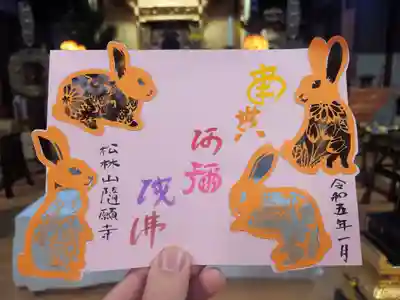 南無
阿彌
陀佛
令和五年一月
松林山隨願寺